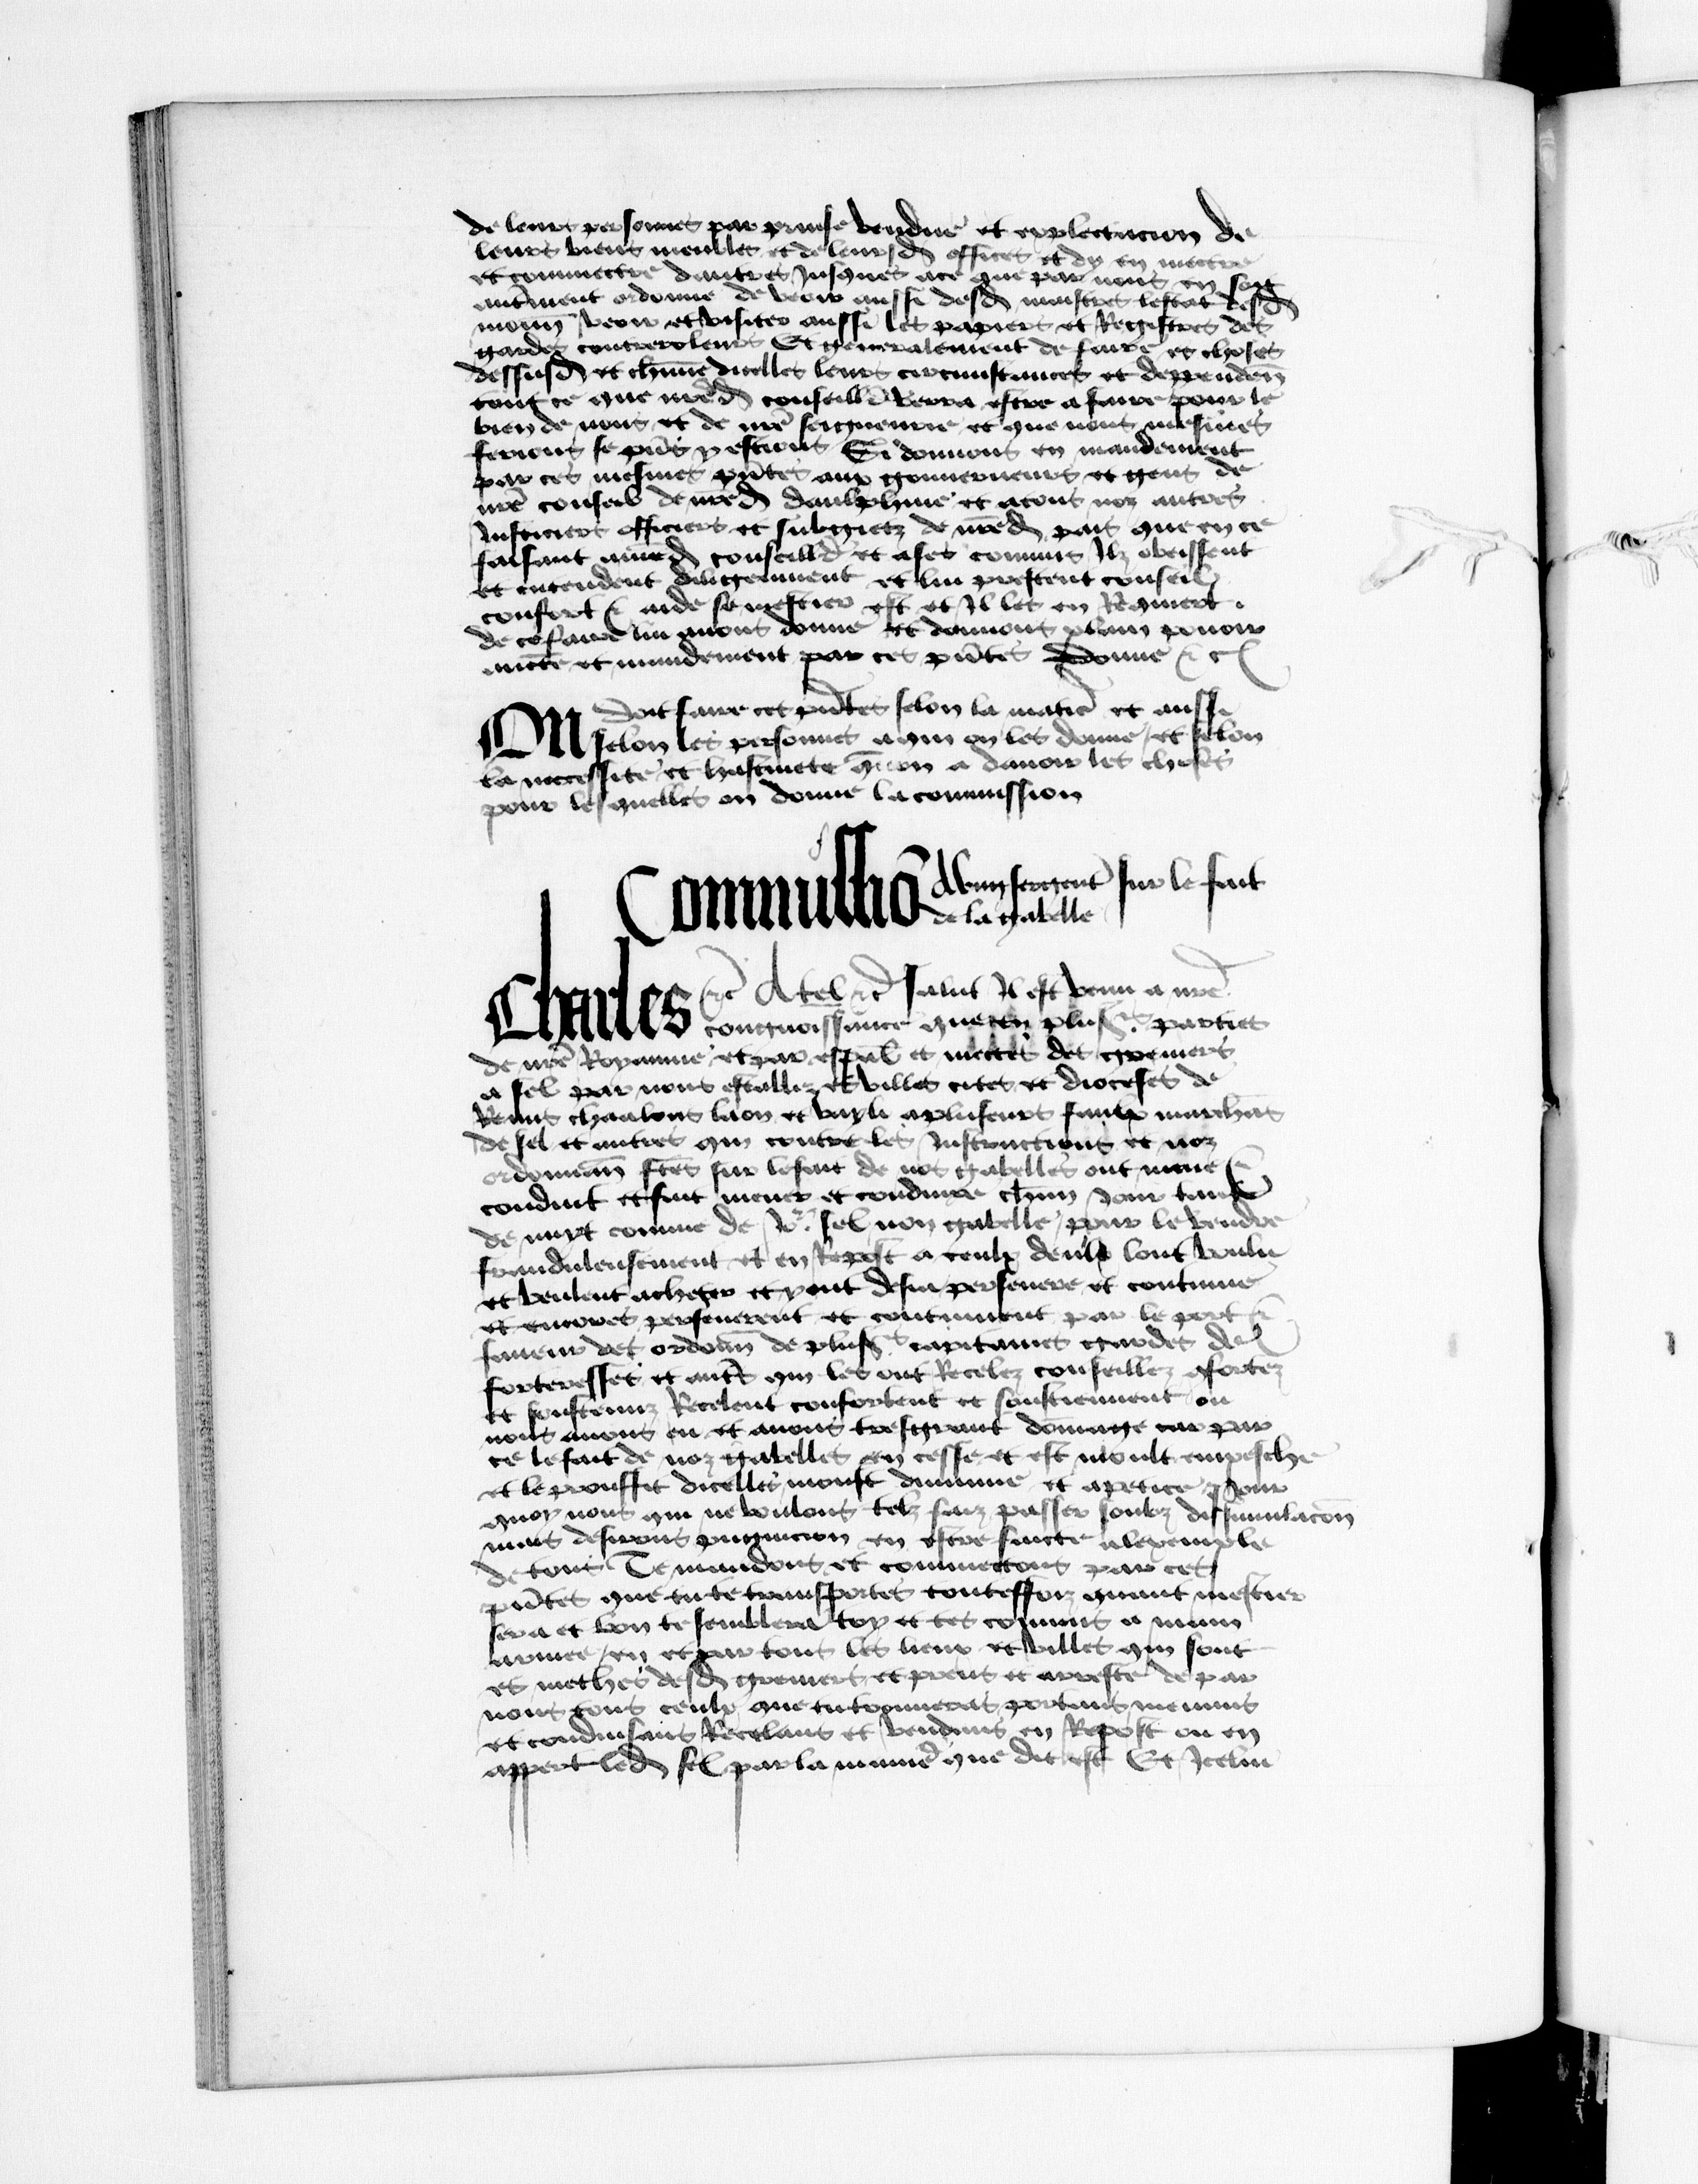 de leurs personnes par prinse vendue et explectacion de
leurs biens meubles et de leursd offices et dy en mectre
et commectre dautres Jusques ace que par nous en soit
autrement ordonne de veoir aussi desd monstres lestat desd
monn veoir et visiter aussi les papiers et Registres des
gardes contreroleurs Et generalement de faire es choses
dessusd et chune dicelles leurs circunstances et dependen
tout ce que nred conseillr verra estre a faire pour le
bien de nous et de nre seigneurie et que nous mesmes
ferions se pns y estions Si donnons en mandement
par ces mesmes pntes aux gouverneurs et gens de
nre conseil de nred daulphine et atous noz autres
Justiciers officiers et subgietz de nred pais que en ce
faisant anred conseillr et ases commis Ilz obeissent
et entendent diligemment et lui prestent conseil
confort & aide se mestier est et Il les en Requiert
de ce faire lui avons donne et donnons plain povoir
aucte et mandement par ces pntes Donne & c
ON doit faire ces pntes selon la matiere et aussi
selon les personnes a qui on les donne et selon
la necessite et hastivete quon a davoir les choses
pour lesquelles on donne la commission
Commissio Abung sergent sur le fait
de la gabelle
Charles &c A tel &c salut Il est venu a nre
congnoissance que en plusrs parties
de nre Royaume et par espal es mectes des greniers
a sel par nous establiz es villes cites et dioceses de
Reims chaalons laon et a plusieurs faulx marchas
de sel et autres qui contre les Instructions et noz
ordonnan fces sur lefait de nos gabelles ont mene &
conduit et fait mener et conduire chun jour tant
de nuyt comme de Jor sel non gabelle pour le vendre
fraudulensement et en Repost a ceulx deulx lont voulu
et veulent acheter et y ont desia persevere et continue
et encores perseverent et continuent par le port &
faveur des ordonn de plusrs capitaines gardes de
forteresses et autrs qui les ont Recelez conseillez cfortez
et soustenuz Recelent confortent et soustiennent ou
nous avons eu et avons tresgrant dommage car par
ce lefait de noz gabelles en cesse et est moult empesche
et le prouffit dicelles moust diminue et apetice Pour
quoy nous qui ne voulons telz faiz passer soubz dissimulacon
mais desirons pugnicion en estre faicte alexemple
de tous Te mandons et commectons par ces
pntes que tu te transportes touteffoiz quant mestier
sera et bon te semblera toy et tes commis a main
armee en et par tous les lieux et villes qui sont
es methes desd greniers et prens et arreste de par
nous tous ceulx que tu trouveras portans menans
et conduisans Recelans et vendans en Repost ou en
appert led sel par la maniere que dit est Et Icelui